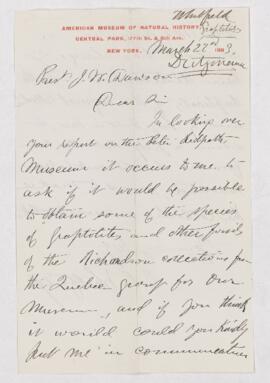 Whitfield
AMERICAN MUSEUM OF NATURAL HISTORY,
Graptolites
CENTRAL PARK, (77th St. & 8th Ave.
NEW YORK. March 22nd 1883.
Dictyonema
Prest J. W. Dawson
Dear Sir
In looking over
your report on the Peter Redpath
Museum it occurs to me to
ask if it would be possible
to obtain some of the species
of Graptolites and other fossils
of the Richardson collections from
the Quebec group for Our
Museum, and if you think
it would could you kindly
put me in communication